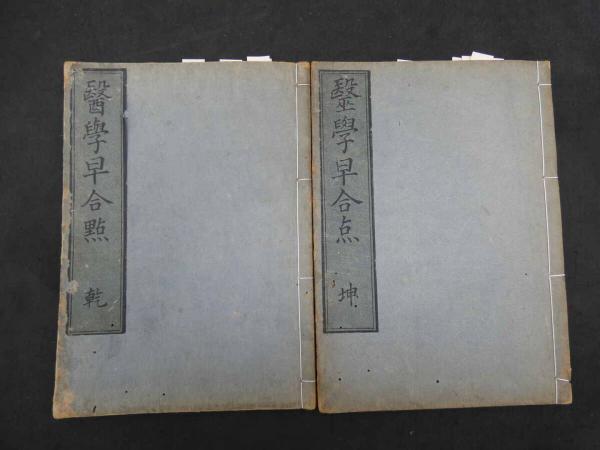 醫學早合點 乾
毉學早合点 坤